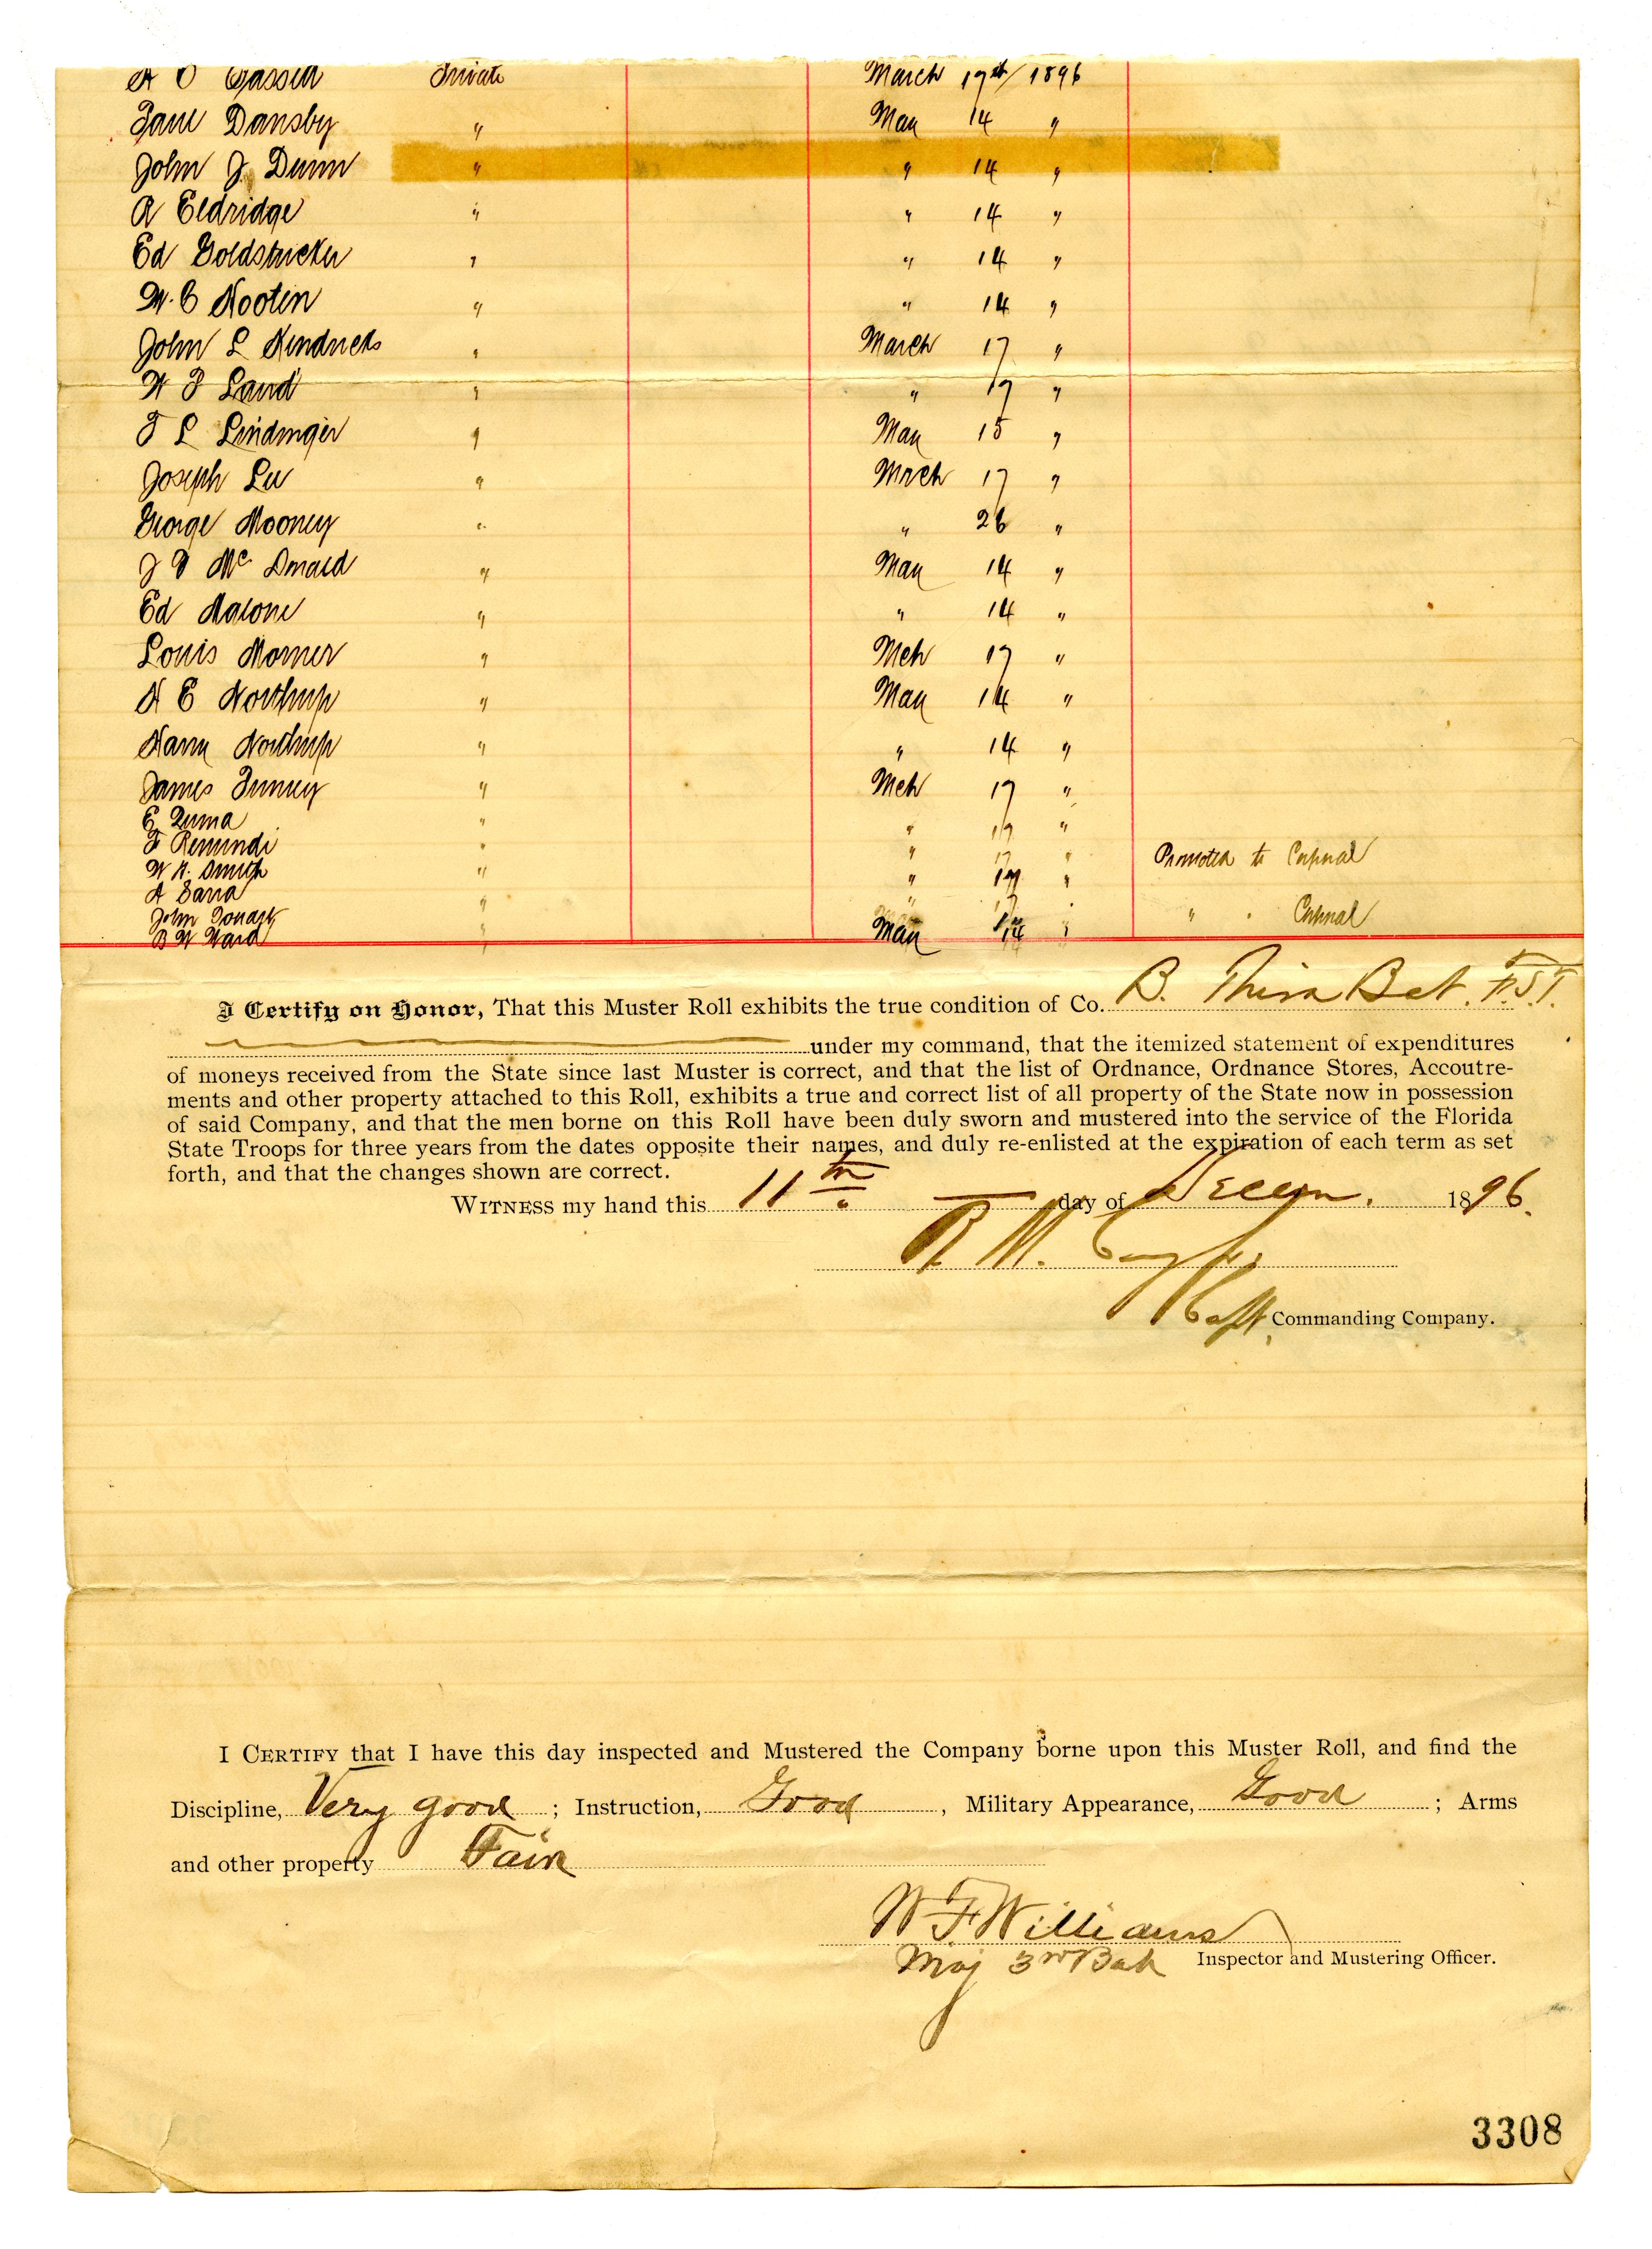 Private March 17th/ 1896
Dansby " May 14 "
John J. Dunn " " 14 "
A Eldridge " " 14 "
Ed Goldstucker " " 14 "
W. C Hooten " " 14 "
John L Kindness " March 17 "
W F Land " " 17 "
F L Lindinger " May 15 "
Joseph Lee " March 17 "
George Mooney " " 26 "
J D Mc Donald " May 14 "
Ed Malone " " 14 "
Louis " Mch 17 "
H E Northup " May 14 "
Harry Northup " " 14 "
James " Mch 17 "
E Zuma " " 17 "
F " " 17 " Promoted to Corporal
W H. Smith " " 17 "
A " " 17 "
John " " 17 " " " Corporal
B W Ward " May 14 "
I Certify on Honor, That this Muster Roll exhibits the true condition of Co. B. Third Bat. F.S.T.
under my command, that the itemized statement of expenditures
of moneys received from the State since last Muster is correct, and that the list of Ordnance, Ordnance Stores, Accoutre-
ments and other property attached to this Roll, exhibits a true and correct list of all property of the State now in possession
of said Company, and that the men borne on this Roll have been duly sworn and mustered into the service of the Florida
State Troops for three years from the dates opposite their names, and duly re-enlisted at the expiration of each term as set
forth, and that the changes shown are correct.
WITNESS my hand this 11th day of Decem. 1896.
R M.
Capt. Commanding Company.
I CERTIFY that I have this day inspected and Mustered the Company borne upon this Muster Roll, and find the
Discipline, Very good ; Instruction, Good , Military Appearance, Good ; Arms
and other property Fair
W F Williams
Maj 3rd Bat Inspector and Mustering Officer.
3308